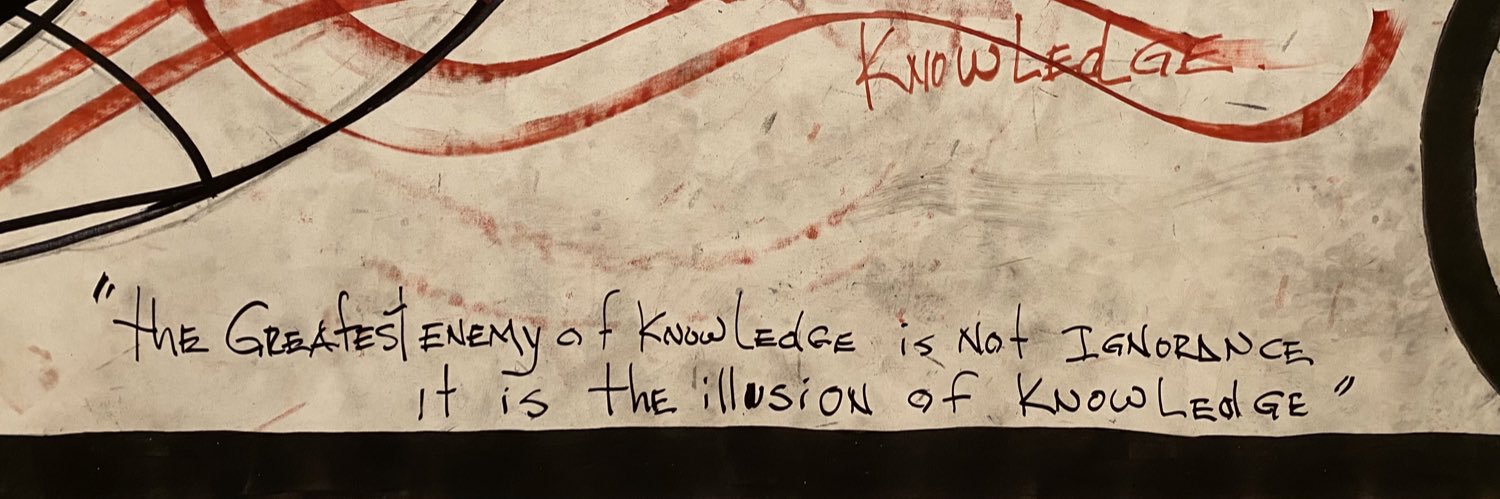 KNOWLEdGE.
"the GREAtESt ENEMy of KNOWLEdGE is Not IGNORANCE
it is the illusiON of KNOWLEdGE"